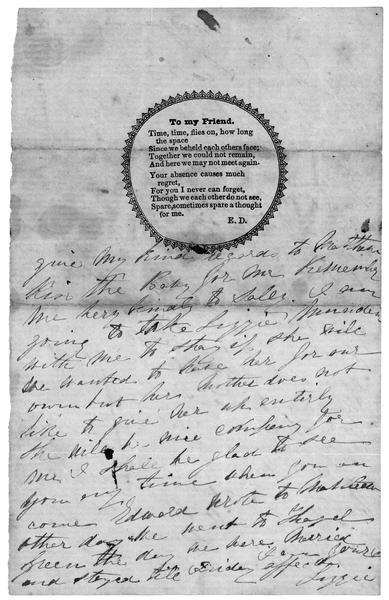 To my Friend.
Time, time, flies on, how long
the space
Since we beheld each others face;
Together we could not remain,
And here we may not meet again.
Your absence causes much
regret,
For you I never can forget,
Though we each other do not see,
Spare, sometimes spare a thought
for me.
E. D.
give my kind regards to
Kiss the Baby for me Remember
me very kindly to I am
going to take Lizzie
with me to stay if she will
we wanted to have her for our
own but her Mother does not
like to give her up entirely
She will be nice company for
me I shall be glad to see
you any time when you can
come Edward wrote to
other day we went to
Green the day we were Married
and stayed till Friday yours
affect
Lizzie